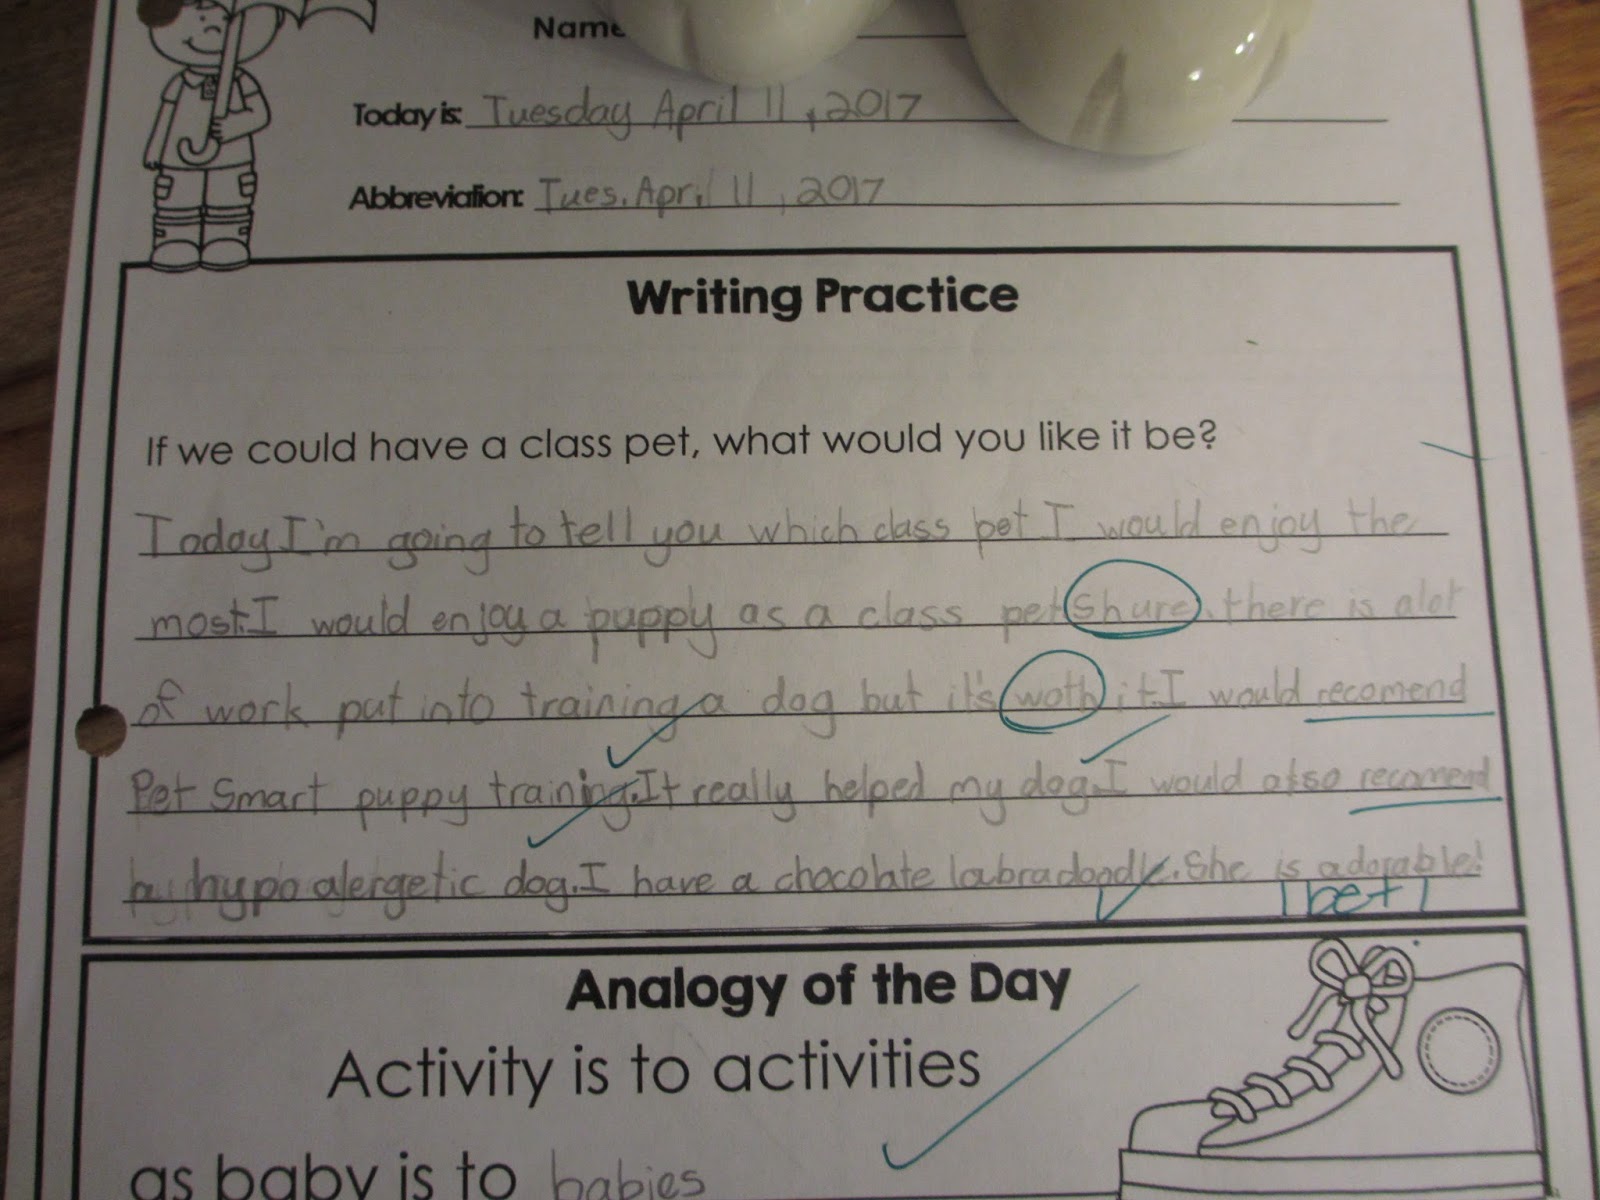 Name
Today is: Tuesday April 11, 2017
Abbreviation: Tues. Apr. 11, 2017
Writing Practice
If we could have a class pet, what would you like it be?
Today I'm going to tell you which class pet I would enjoy the
most. I would enjoy a puppy as a class pet shure. there is alot
of work put into training a dog but it's woth it. I would recomend
Pet Smart puppy training. It really helped my dog. I would also recomend
hypo alergetic dog. I have a chocolate labradoodle. She is adorable!
I bet!
Analogy of the Day
Activity is to activities
as baby is to babies